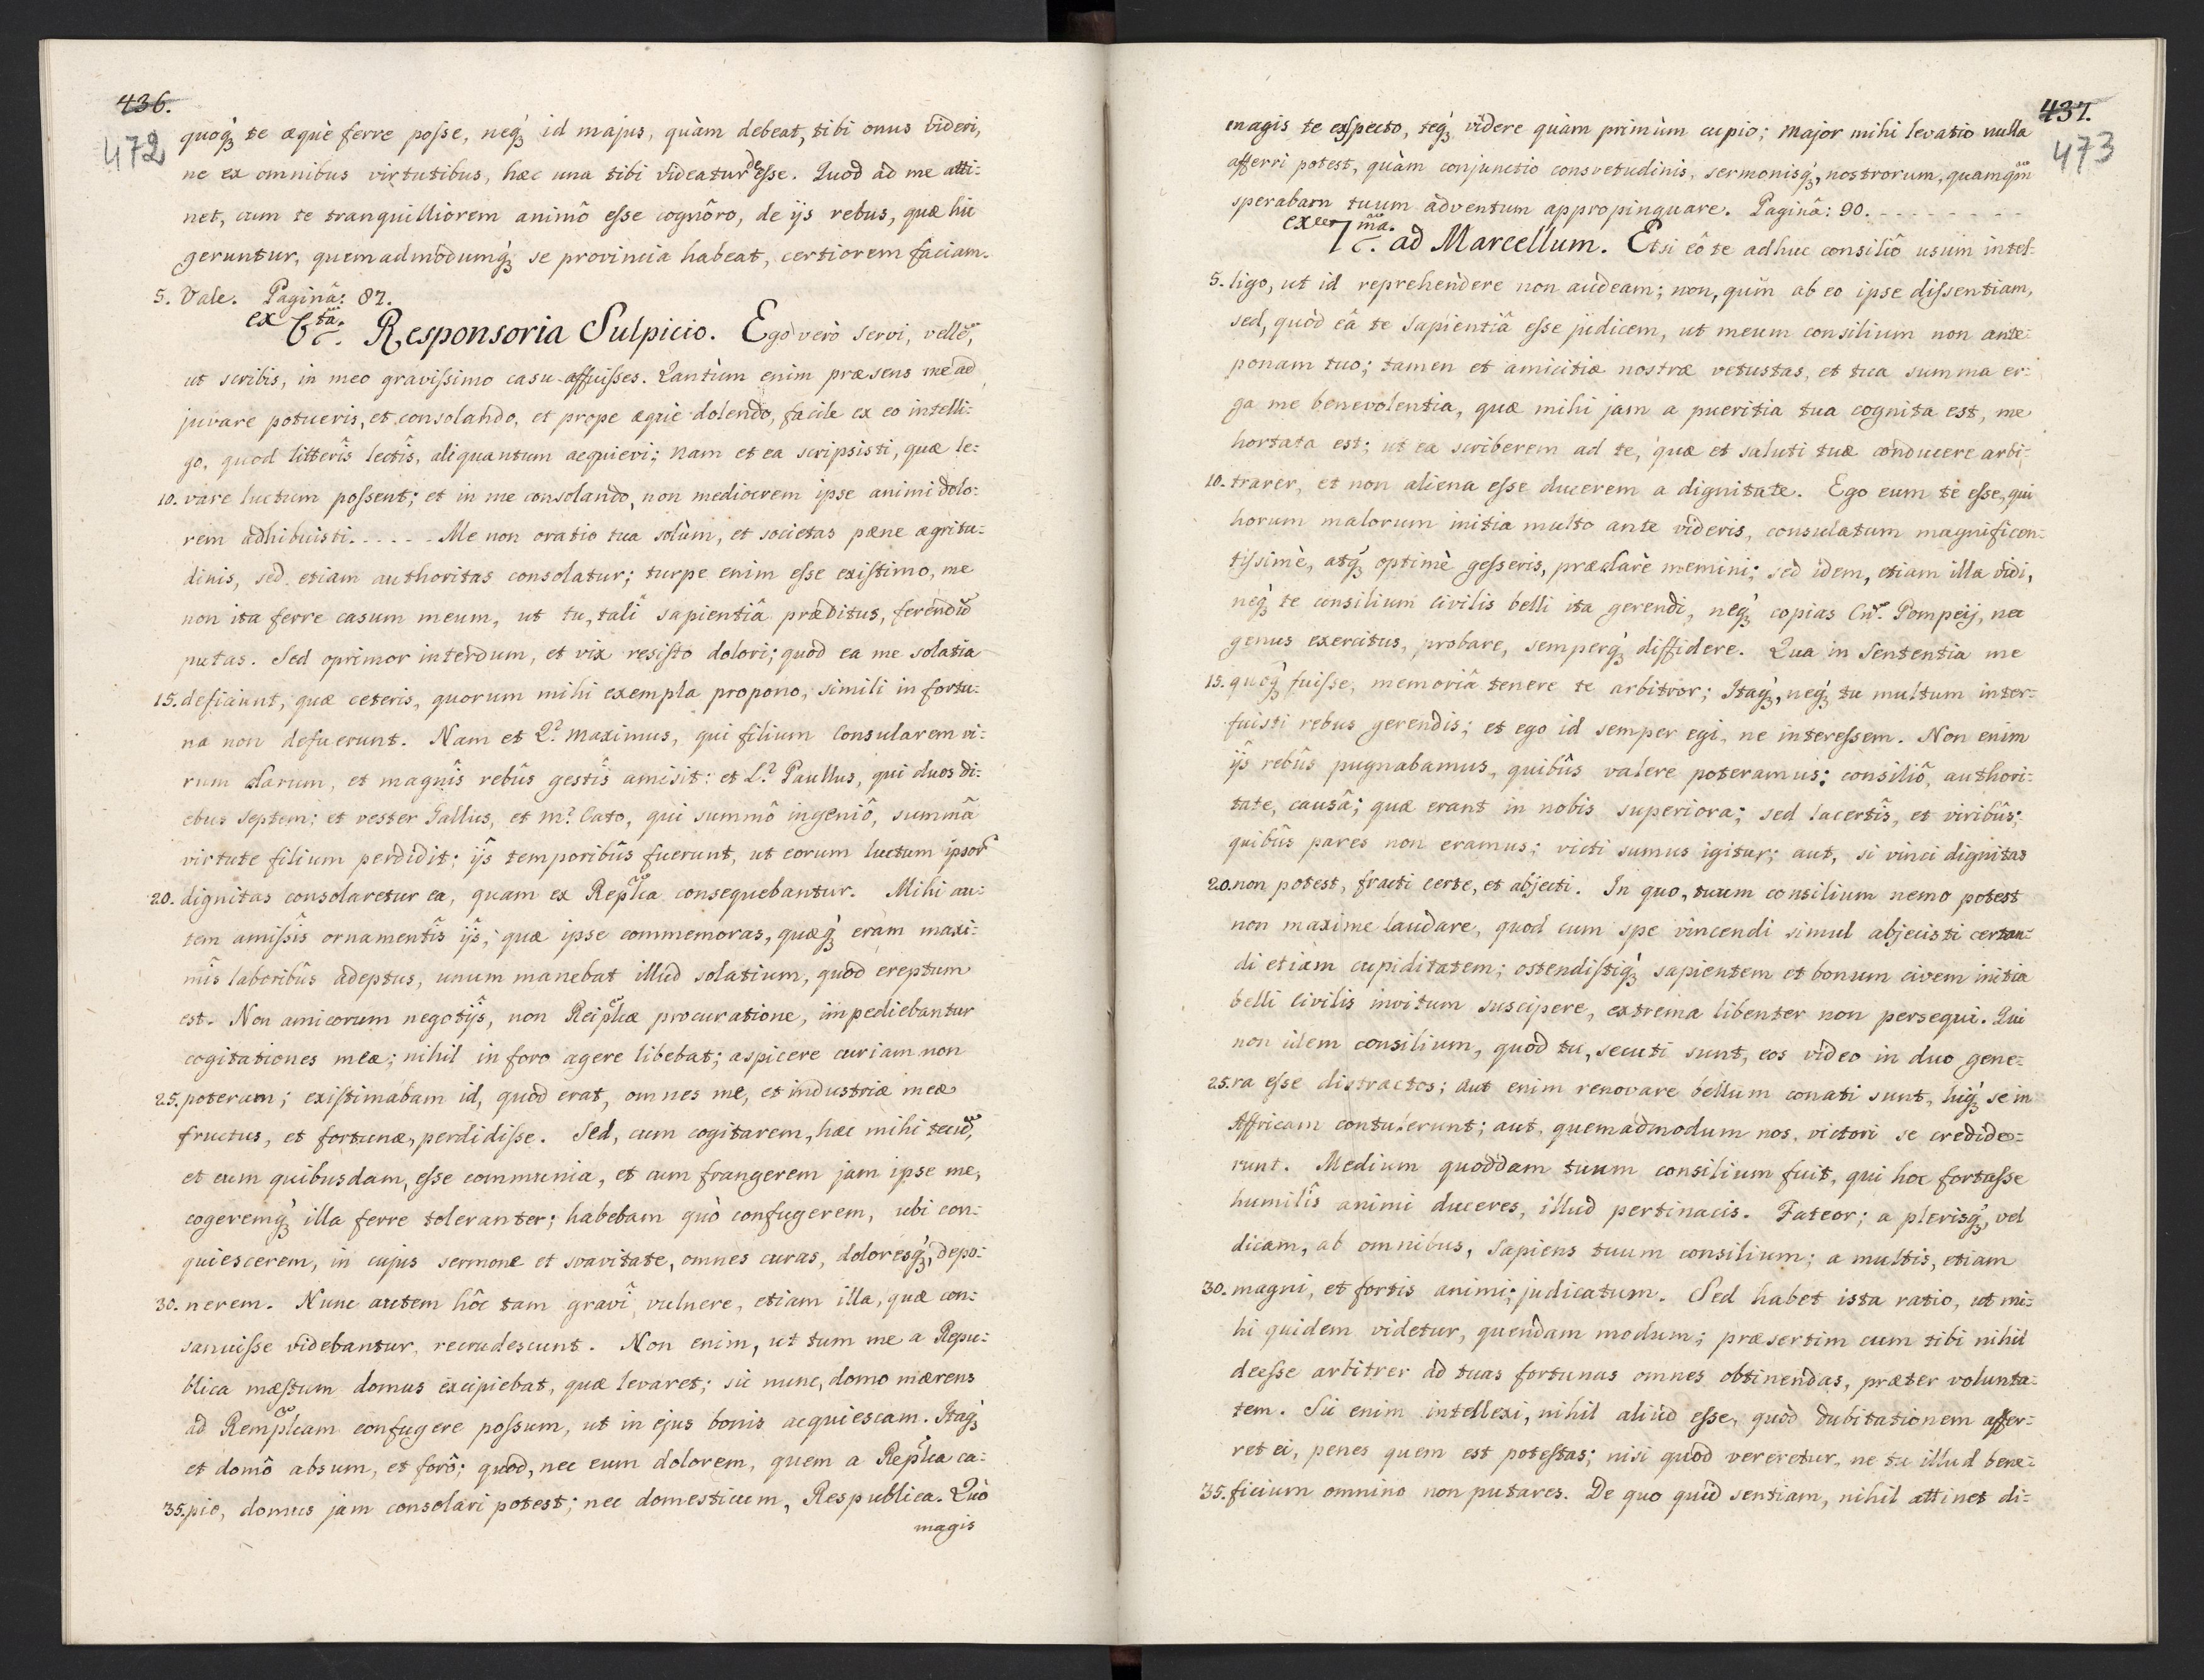 436.
472
quoq́ꝫ te æquè ferre posse, neq́ꝫ id majus, quàm debeat, tibi onus videri,
ne ex omnibus virtutibus, hæc una tibi videatur deesse. Quod ad me atti-
net, cum te tranquilliorem animô esse cognôro, de ijs rebus, quæ hic
geruntur, quemadmodumq́ꝫ se provincia habeat, certiorem faciam.
5. Vale. Paginâ: 87.
ex 6.tâ Responsoria Sulpicio. Ego verò Servi, vellẽ,
ut scribis, in meo gravissimo casu affuisses. Quantùm enim præsens me ad
juvare potueris, et consolando, et prope æquè dolendo, facile ex eo intelli-
go, quod litterîs lectîs, aliquantum acquievi; Nam et ea scripsisti, quæ le-
10. vare luctum possent; et in me consolando, non mediocrem ipse animi dolo-
rem adhibuisti. - - - - - Me non oratio tua solùm, et societas pæne ægritu-
dinis, sed etiam authoritas consolatur; turpe enim esse existimo, me
non ita ferre casum meum, ut tu, talî sapientiâ præditus, ferendũ
putas. Sed oprimor interdum, et vix resisto dolori; quòd ea me solatia
15. defiaunt, quæ ceteris, quorum mihi exempla propono, simili in fortu-
na non defuerunt. Nam et Q. Maximus, qui filium Consularem vi-
rum clarum, et magnîs rebûs gestîs amisit: et L. Paullus, qui duos di-
ebus septem; et vester Gallius, et M. Cato, qui summô ingeniô, summâ
virtute filium perdidit; ijs temporibûs fuerunt, ut eorum luctum ipsor
20. dignitas consolaretur ea, quam ex Replca consequebantur. Mihi au-
tem amissîs ornamentîs ijs, quæ ipse commemoras, quæq́ꝫ eram maxi-
mîs laboribûs adeptus, unum manebat illud solatium, quòd ereptum
est. Non amicorum negotijs, non Reiplcæ procuratione, impediebantur
cogitationes meæ; nihil in foro agere libebat; aspicere curiam non
25. poteram; existimabam id, quòd erat, omnes me, et industriæ meæ
fructus, et fortunæ, perdidisse. Sed, cum cogitarem, hæc mihi tecũ,
et cum quibusdam, esse communia, et cum frangerem jam ipse me,
cogeremq́ꝫ illa ferre toleranter; habebam quò confugerem, ubi con-
quiescerem, in cujus sermone et svavitate, omnes curas, doloresq́ꝫ, depo-
30. nerem. Nunc autem hôc tam gravî vulnere, etiam illa, quæ con-
sanuisse videbantur, recrudescunt. Non enim, ut tum me a Repu-
blica mæstum domus excipiebat, quæ levaret; sic nunc, domo mærens
ad Remplcam confugere possum, ut in ejus bonis acquiescam. Itaq́ꝫ
et domô absum, et forô; quòd, nec eum dolorem, quem a Replca ca-
35. pio, domus jam consolari potest; nec domesticum, Respublica. Quò
magis
437.
473
magis te exspecto, teq́ꝫ videre quàm primùm cupio; Major mihi levatio nulla
afferri potest, quàm conjunctio consvetudinis, sermonisq́ꝫ, nostrorum, quamq̃m
sperabam tuum adventum appropinquare. Paginâ: 90. - - - - - - - -
ex 7.mâ ad Marcellum. Etsi eô te adhuc consiliô usum intel-
5. ligo, ut id reprehendere non audeam; non, quin ab eo ipse dissentiam,
sed, quòd eâ te sapientiâ esse judicem, ut meum consilium non ante-
ponam tuo; tamen et amicitiæ nostræ vetustas, et tua summa er-
ga me benevolentia, quæ mihi jam a pueritia tua cognita est, me
hortata est; ut ea scriberem ad te, quæ et saluti tuæ conducere arbi-
10. trarer, et non aliena esse ducerem a dignitate. Ego eum te esse, qui
horum malorum initia multo ante videris, consulatum magnificen-
tissimè, atq́ꝫ optimè gesseris, præclarè memini; sed idem, etiam illa vidi,
neq́ꝫ te consilium civilis belli ita gerendi, neq́ꝫ copias Cn. Pompeij, nec
genus exercitus, probare, semperq́ꝫ diffidere. Qua in Sententia me
15. quoq́ꝫ fuisse, memoriâ tenere te arbitror; Itaq́ꝫ, neq́ꝫ tu multum inter-
fuisti rebus gerendis; et ego id semper egi, ne interessem. Non enim
ijs rebûs pugnabamus, quibûs valere poteramus; consiliô, authori-
tate, causâ; quæ erant in nobis superiora; sed lacertîs, et viribûs;
quibûs pares non eramus; victi sumus igitur; aut, si vinci dignitas
20. non potest, fracti certe, et abjecti. In quo, tuum consilium nemo potest
non maxime laudare, quod cum spe vincendi simul abjecisti certan-
di etiam cupiditatem; ostendistiq́ꝫ sapientem et bonum civem initia
belli civilis invitum suscipere, extrema libenter non persequi. Qui
non idem consilium, quòd tu, secuti sunt, eos video in duo gene-
25. ra esse distractos; aut enim renovare bellum conati sunt, hiq́ꝫ se in
Affricam contulerunt; aut, quemadmodum nos, victori se credide-
runt. Medium quoddam tuum consilium fuit, qui hoc fortasse
humilîs animi duceres, illud pertinacis. Fateor; a plerisq́ꝫ, vel
dicam, ab omnibus, sapiens tuum consilium; a multis, etiam
30. magni, et fortis animi; judicatum. Sed habet ista ratio, ut mi-
hi quidem videtur, quendam modum; præsertim cum tibi nihil
deesse arbitrer ad tuas fortunas omnes obtinendas, præter volunta-
tem. Sic enim intellexi, nihil aliud esse, quòd dubitationem affer-
ret ei, penes quem est potestas; nisi quòd vereretur, ne tu illud bene-
35. ficium omnino non putares. De quo quid sentiam, nihil attinet di-